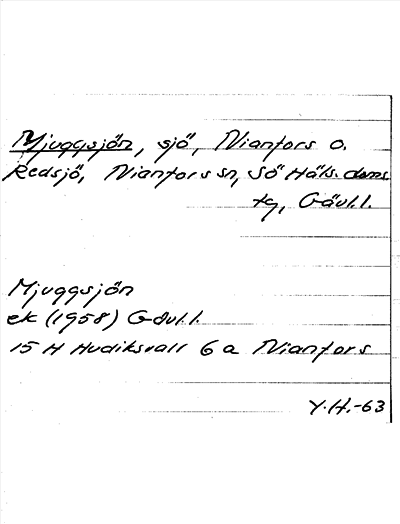 Mjuggsjön, sjö, Nianfors o.
Redsjö, Nianfors sn, SÖ Häls. doms
tg, Gävl.l.
Mjuggsjön
ek (1958) Gävl.l.
15 H Hudiksvall 6 a Nianfors
Y.H.-63